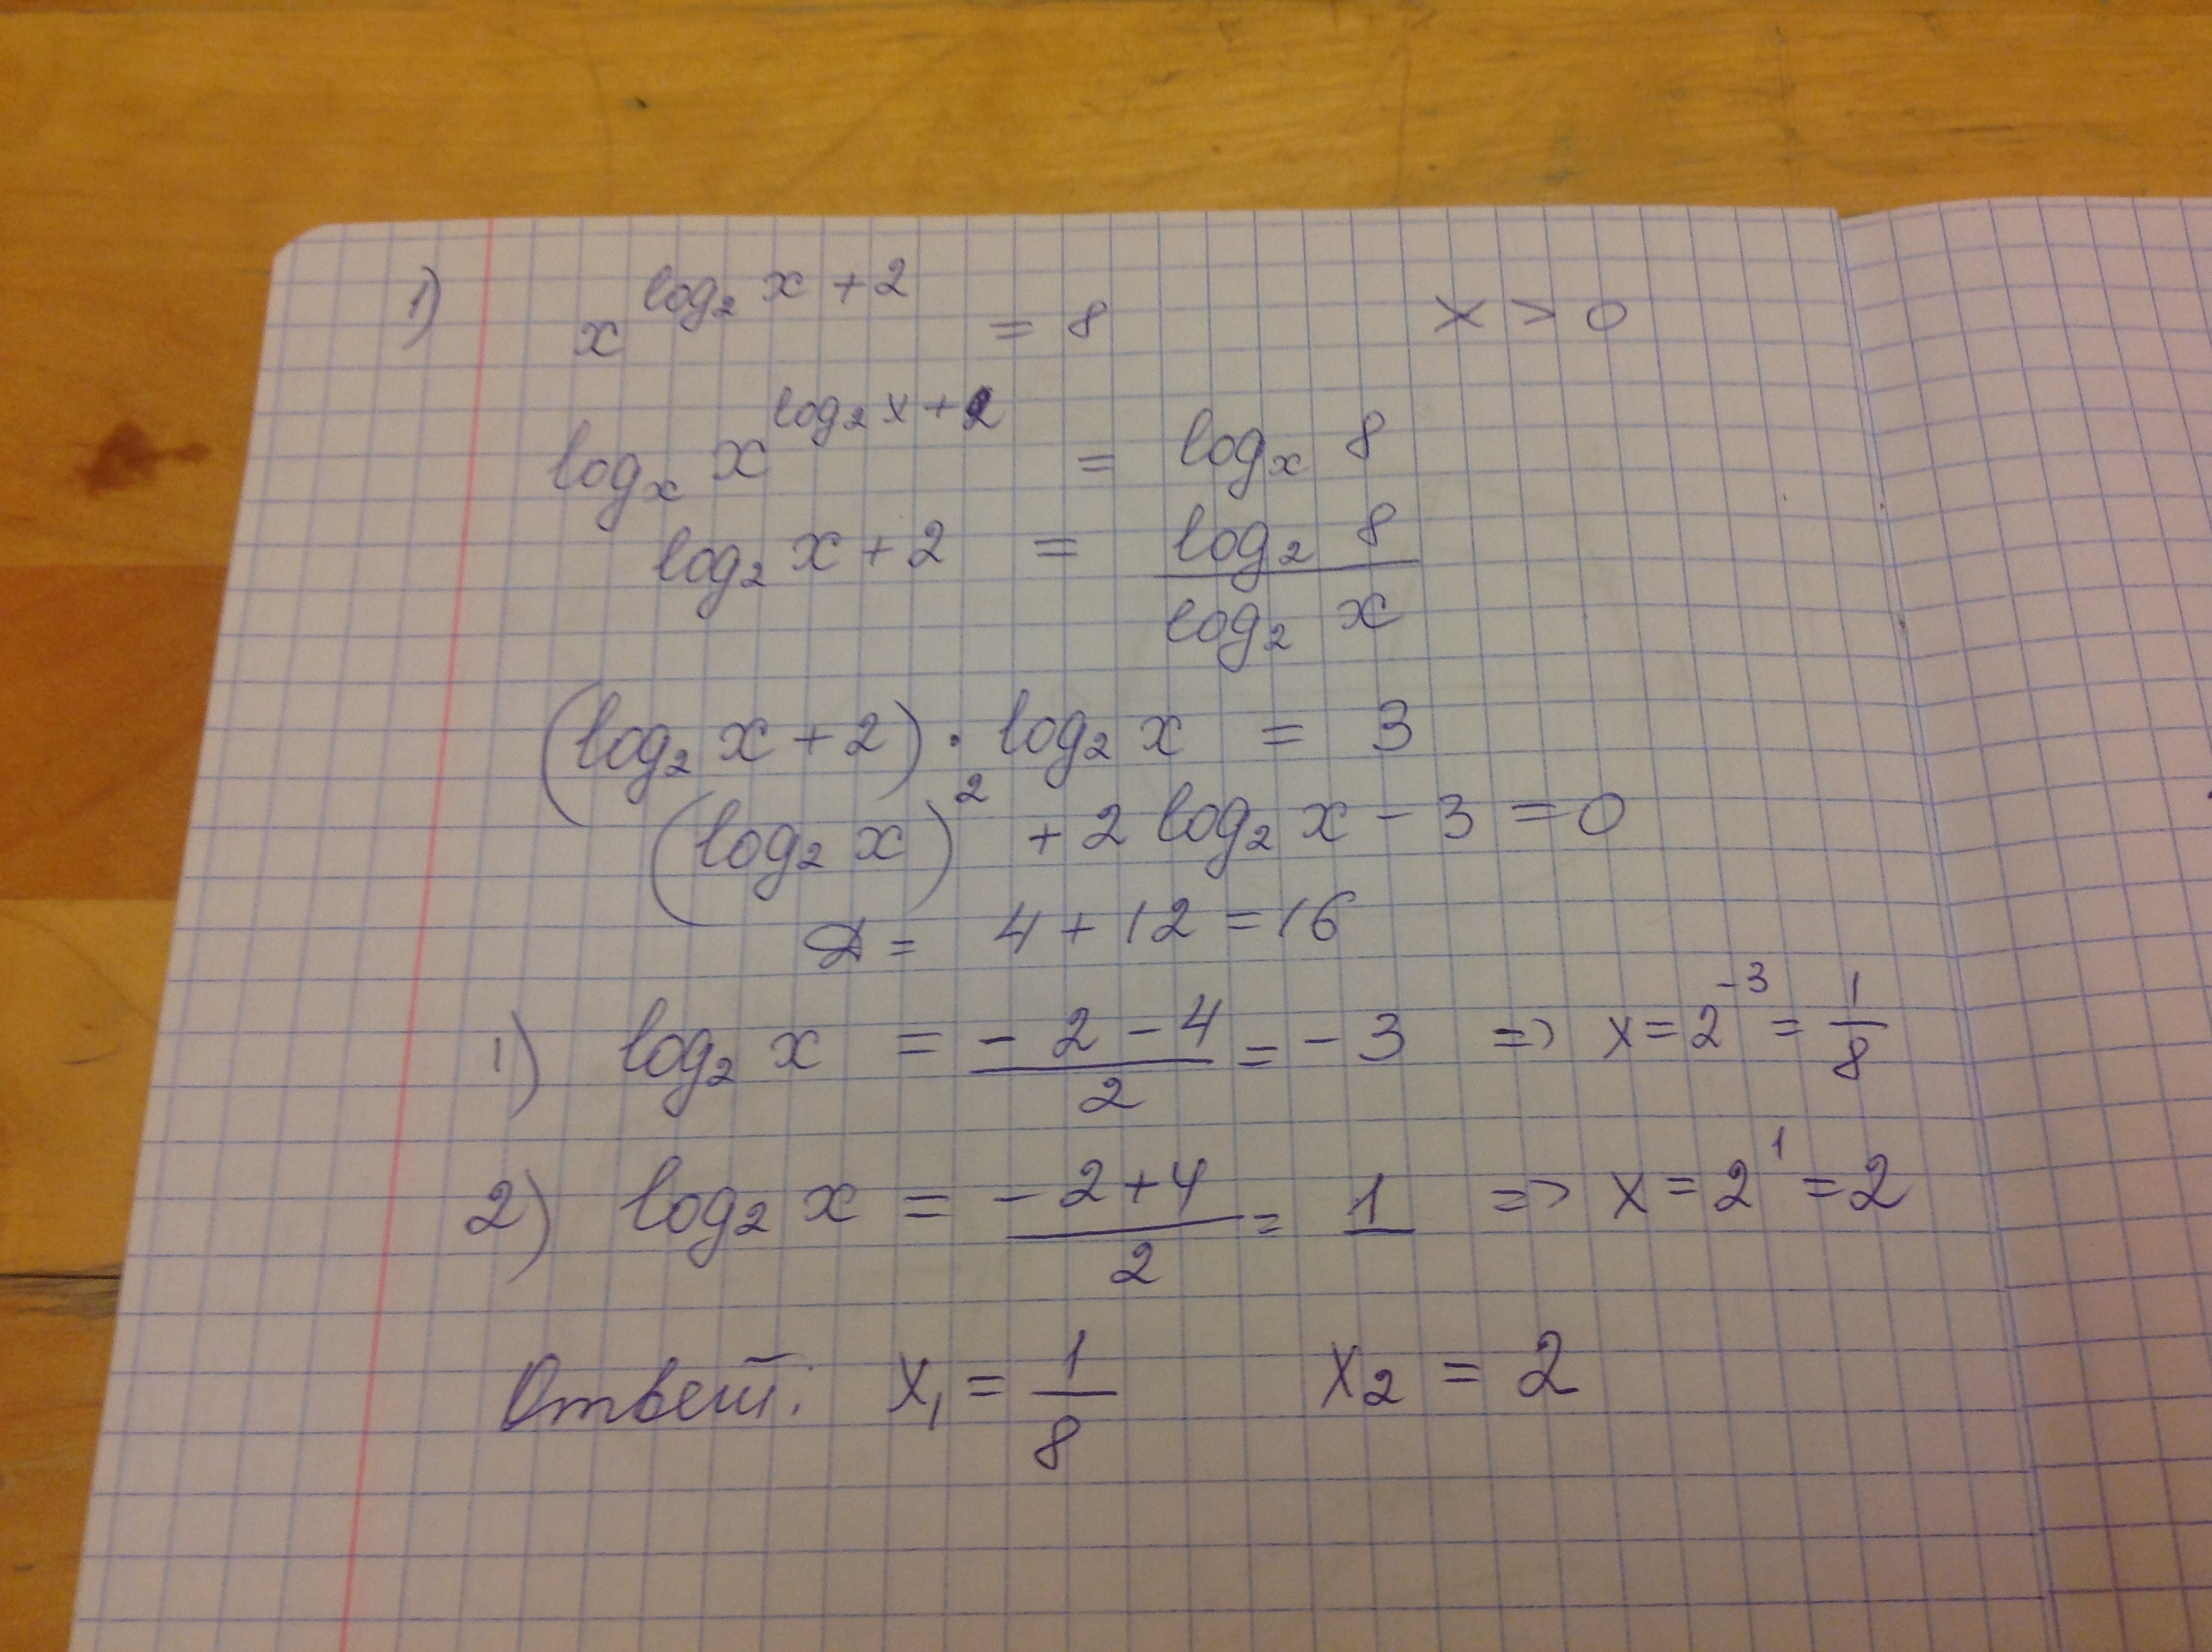 1) x^(log₂ x + 2) = 8 x > 0
logₓ x^(log₂ x + 2) = logₓ 8
log₂ x + 2 = (log₂ 8)/(log₂ x)
(log₂ x + 2) · log₂ x = 3
(log₂ x)² + 2 log₂ x - 3 = 0
D = 4 + 12 = 16
1) log₂ x = (-2 - 4)/2 = -3 => x = 2⁻³ = 1/8
2) log₂ x = (-2 + 4)/2 = 1 => x = 2¹ = 2
Ответ: x₁ = 1/8 x₂ = 2